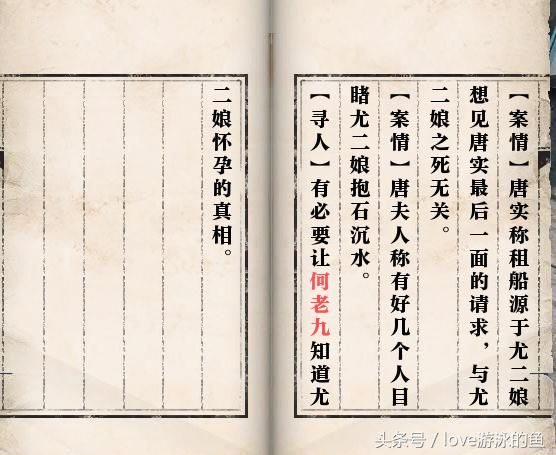 【案情】唐实称租船源于尤二娘
想见唐实最后一面的请求，与尤
二娘之死无关。
【案情】唐夫人称有好几个人目
睹尤二娘抱石沉水。
【寻人】有必要让何老九知道尤
二娘怀孕的真相。
头条号 / love游泳的鱼